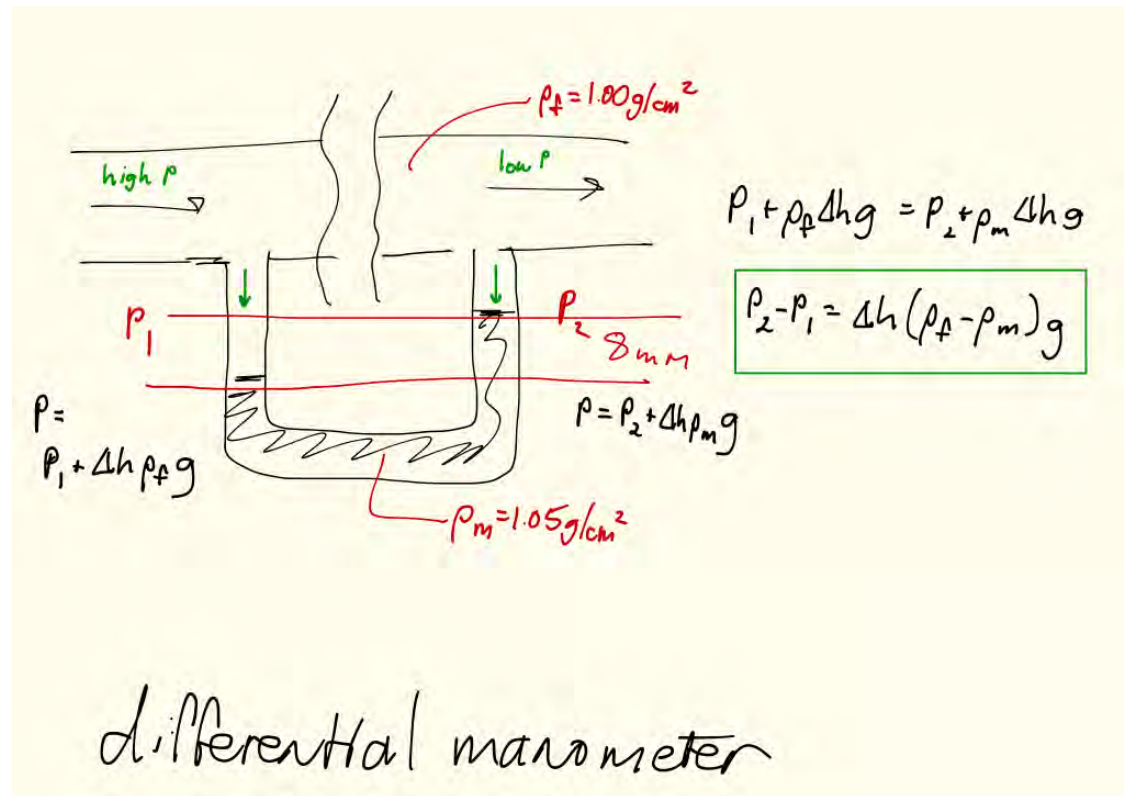 ρf = 1.00g/cm²
high P
low P
P₁ + ρfΔhg = P₂ + ρmΔhg
P₁
P₂
8mm
P₂ - P₁ = Δh(ρf - ρm)g
P =
P₁ + Δhρfg
P = P₂ + Δhρmg
ρm = 1.05g/cm²
differential manometer